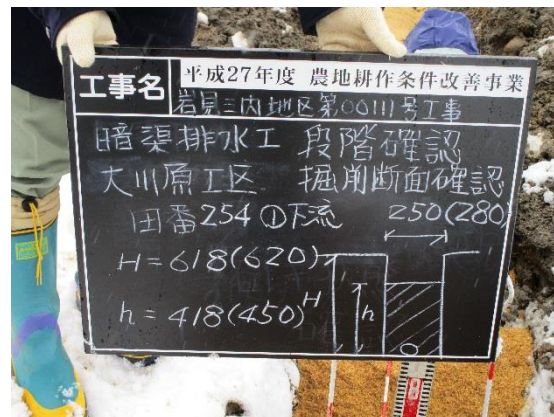 工事名
平成27年度 農地耕作条件改善事業
岩見三内地区第00111号工事
暗渠排水工 段階確認
大川原工区 掘削断面確認
田番254①下流 250(280)
H=618(620)
H
h
h=418(450)